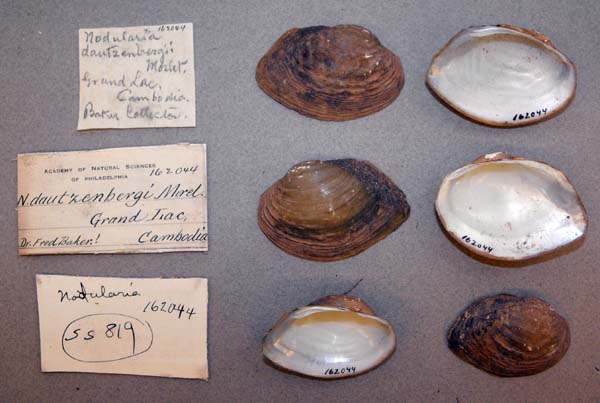 162044
Nodularia
dautzenbergii
Morlet.
Grand Lac,
Cambodia.
Baker Collector.
ACADEMY OF NATURAL SCIENCES
OF PHILADELPHIA
162044
N. dautzenbergi Morel.
Grand Lac,
Dr. Fred Baker! Cambodia
Nodularia
162044
SS 819
162044
162044
162044